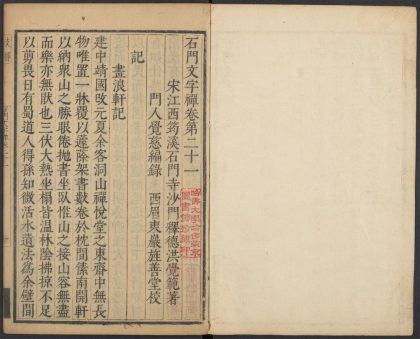 石門文字禪卷第二十一
宋江西筠溪石門寺沙門釋德洪覺範著
門人覺慈編錄 西眉東巖旌善堂校
記
畫浪軒記
建中靖國改元夏余客洞山禪悅堂之東齋中無長
物唯置一牀覆以蘧蒢架書數卷於枕間傃南開軒
以納衆山之勝眼倦拋書坐臥惟山之接山容無盡
而樂亦無猒也三伏大熱坐榻皆溫林陰拂掠不足
以剪畏日有蜀道人得孫知微活水遺法為余壁間